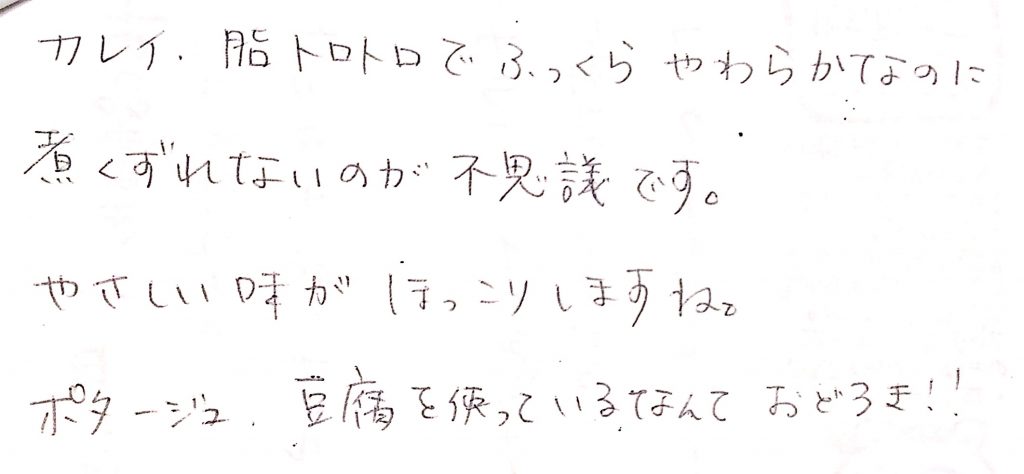 カレイ、脂トロトロでふっくらやわらかなのに
煮くずれないのが不思議です。
やさしい味がほっこりしますね。
ポタージュ、豆腐を使っているなんておどろき!!